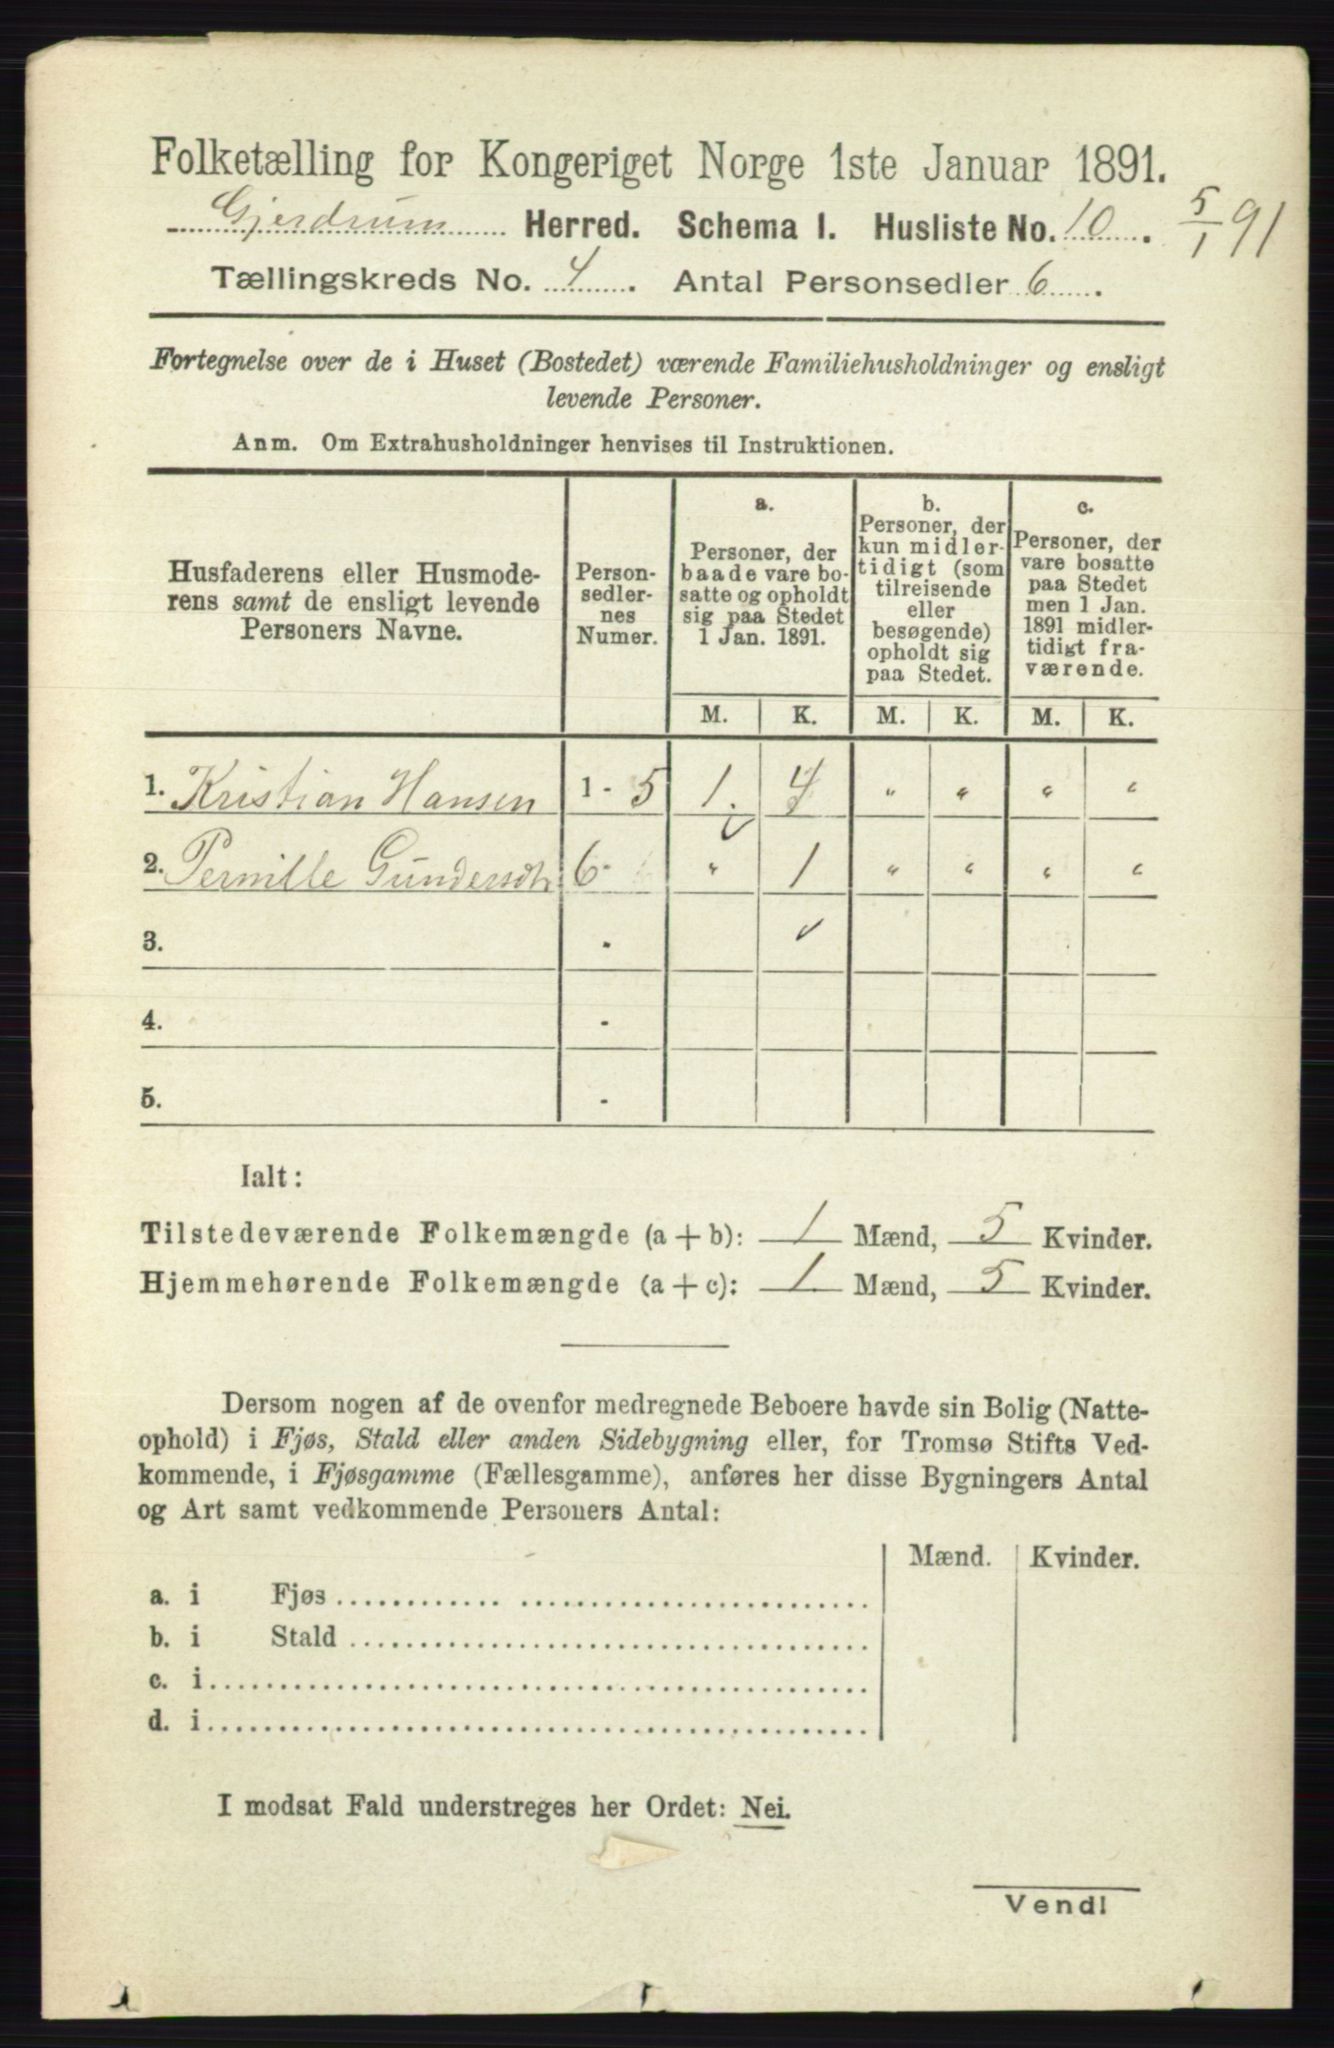 Folketælling for Kongeriget Norge 1ste Januar 1891.
Gjerdrum Herred. Schema I. Husliste No. 10. 5/1 91
Tællingskreds No. 4. Antal Personsedler 6.
Fortegnelse over de i Huset (Bostedet) værende Familiehusholdninger og ensligt
levende Personer.
Anm. Om Extrahusholdninger henvises til Instruktionen.
Husfaderens eller Husmode-
rens samt de ensligt levende
Personers Navne.
Person-
sedler-
nes
Numer.
a.
Personer, der
baade vare bo-
satte og opholdt
sig paa Stedet
1 Jan. 1891.
b.
Personer, der
kun midler-
tidigt (som
tilreisende
eller
besøgende)
opholdt sig
paa Stedet.
c.
Personer, der
vare bosatte
paa Stedet
men 1 Jan.
1891 midler-
tidigt fra-
værende.
M. K. M. K. M. K.
1. Kristian Hansen 1 - 5 1. 4 " " " "
2. Pernille Gundersdtr 6- " 1 " " " "
3. -
4. -
5. -
Ialt:
Tilstedeværende Folkemængde (a + b): 1 Mænd, 5 Kvinder.
Hjemmehørende Folkemængde (a + c): 1 Mænd, 5 Kvinder.
Dersom nogen af de ovenfor medregnede Beboere havde sin Bolig (Natte-
ophold) i Fjøs, Stald eller anden Sidebygning eller, for Tromsø Stifts Ved-
kommende, i Fjøsgamme (Fællesgamme), anføres her disse Bygningers Antal
og Art samt vedkommende Personers Antal:
Mænd. Kvinder.
a. i Fjøs
b. i Stald
c. i
d. i
I modsat Fald understreges her Ordet: Nei.
Vend!